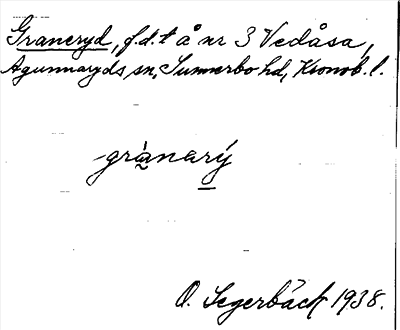 Graneryd, f.d.t å nr 3 Vedåsa,
Agunnaryds sn, Sunnerbo hd, Kronob. l.
grànarý
O. Segerbäck 1938.